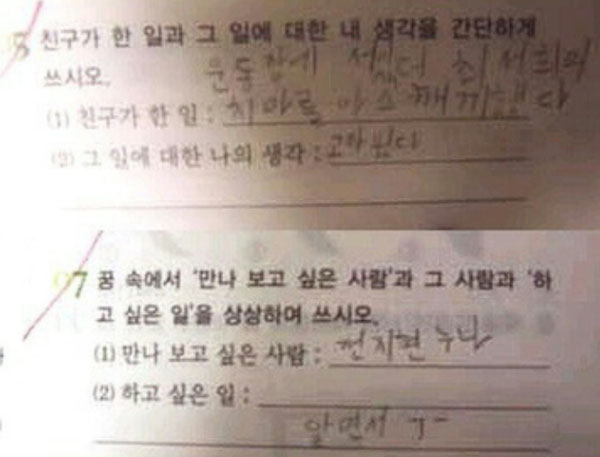 8 친구가 한 일과 그 일에 대한 내 생각을 간단하게
쓰시오.
운동장에 서있더 최서희의
(1) 친구가 한 일 : 치마를 아스깨끼했다
(2) 그 일에 대한 나의 생각 : 고마웠다
07 꿈 속에서 '만나 보고 싶은 사람'과 그 사람과 '하
고 싶은 일'을 상상하여 쓰시오.
(1) 만나 보고 싶은 사람 : 전지현 누나
(2) 하고 싶은 일 :
알면서 ㅋ-